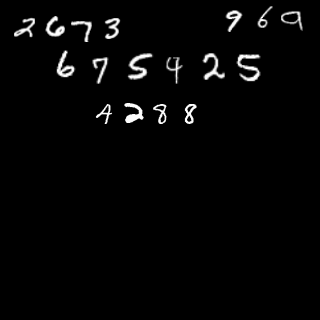 2673 969
675425
4288